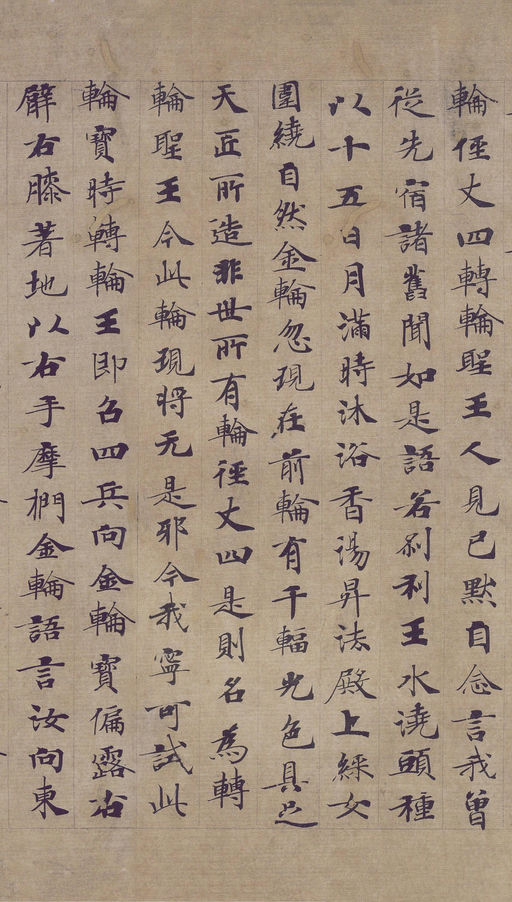 輪侄丈四轉輪聖王人見已默自念言我曾
從先宿諸舊聞如是語若刹利王水澆頭種
以十五日月滿時沐浴香湯昇法殿上婇女
圍繞自然金輪忽現在前輪有千輻光色具足
天匠所造非世所有輪徑丈四是則名為轉
輪聖王今此輪現將无是邪今我寧可試此
輪寶時轉輪王即召四兵向金輪寶偏露右
臂右膝著地以右手摩捫金輪語言汝向東